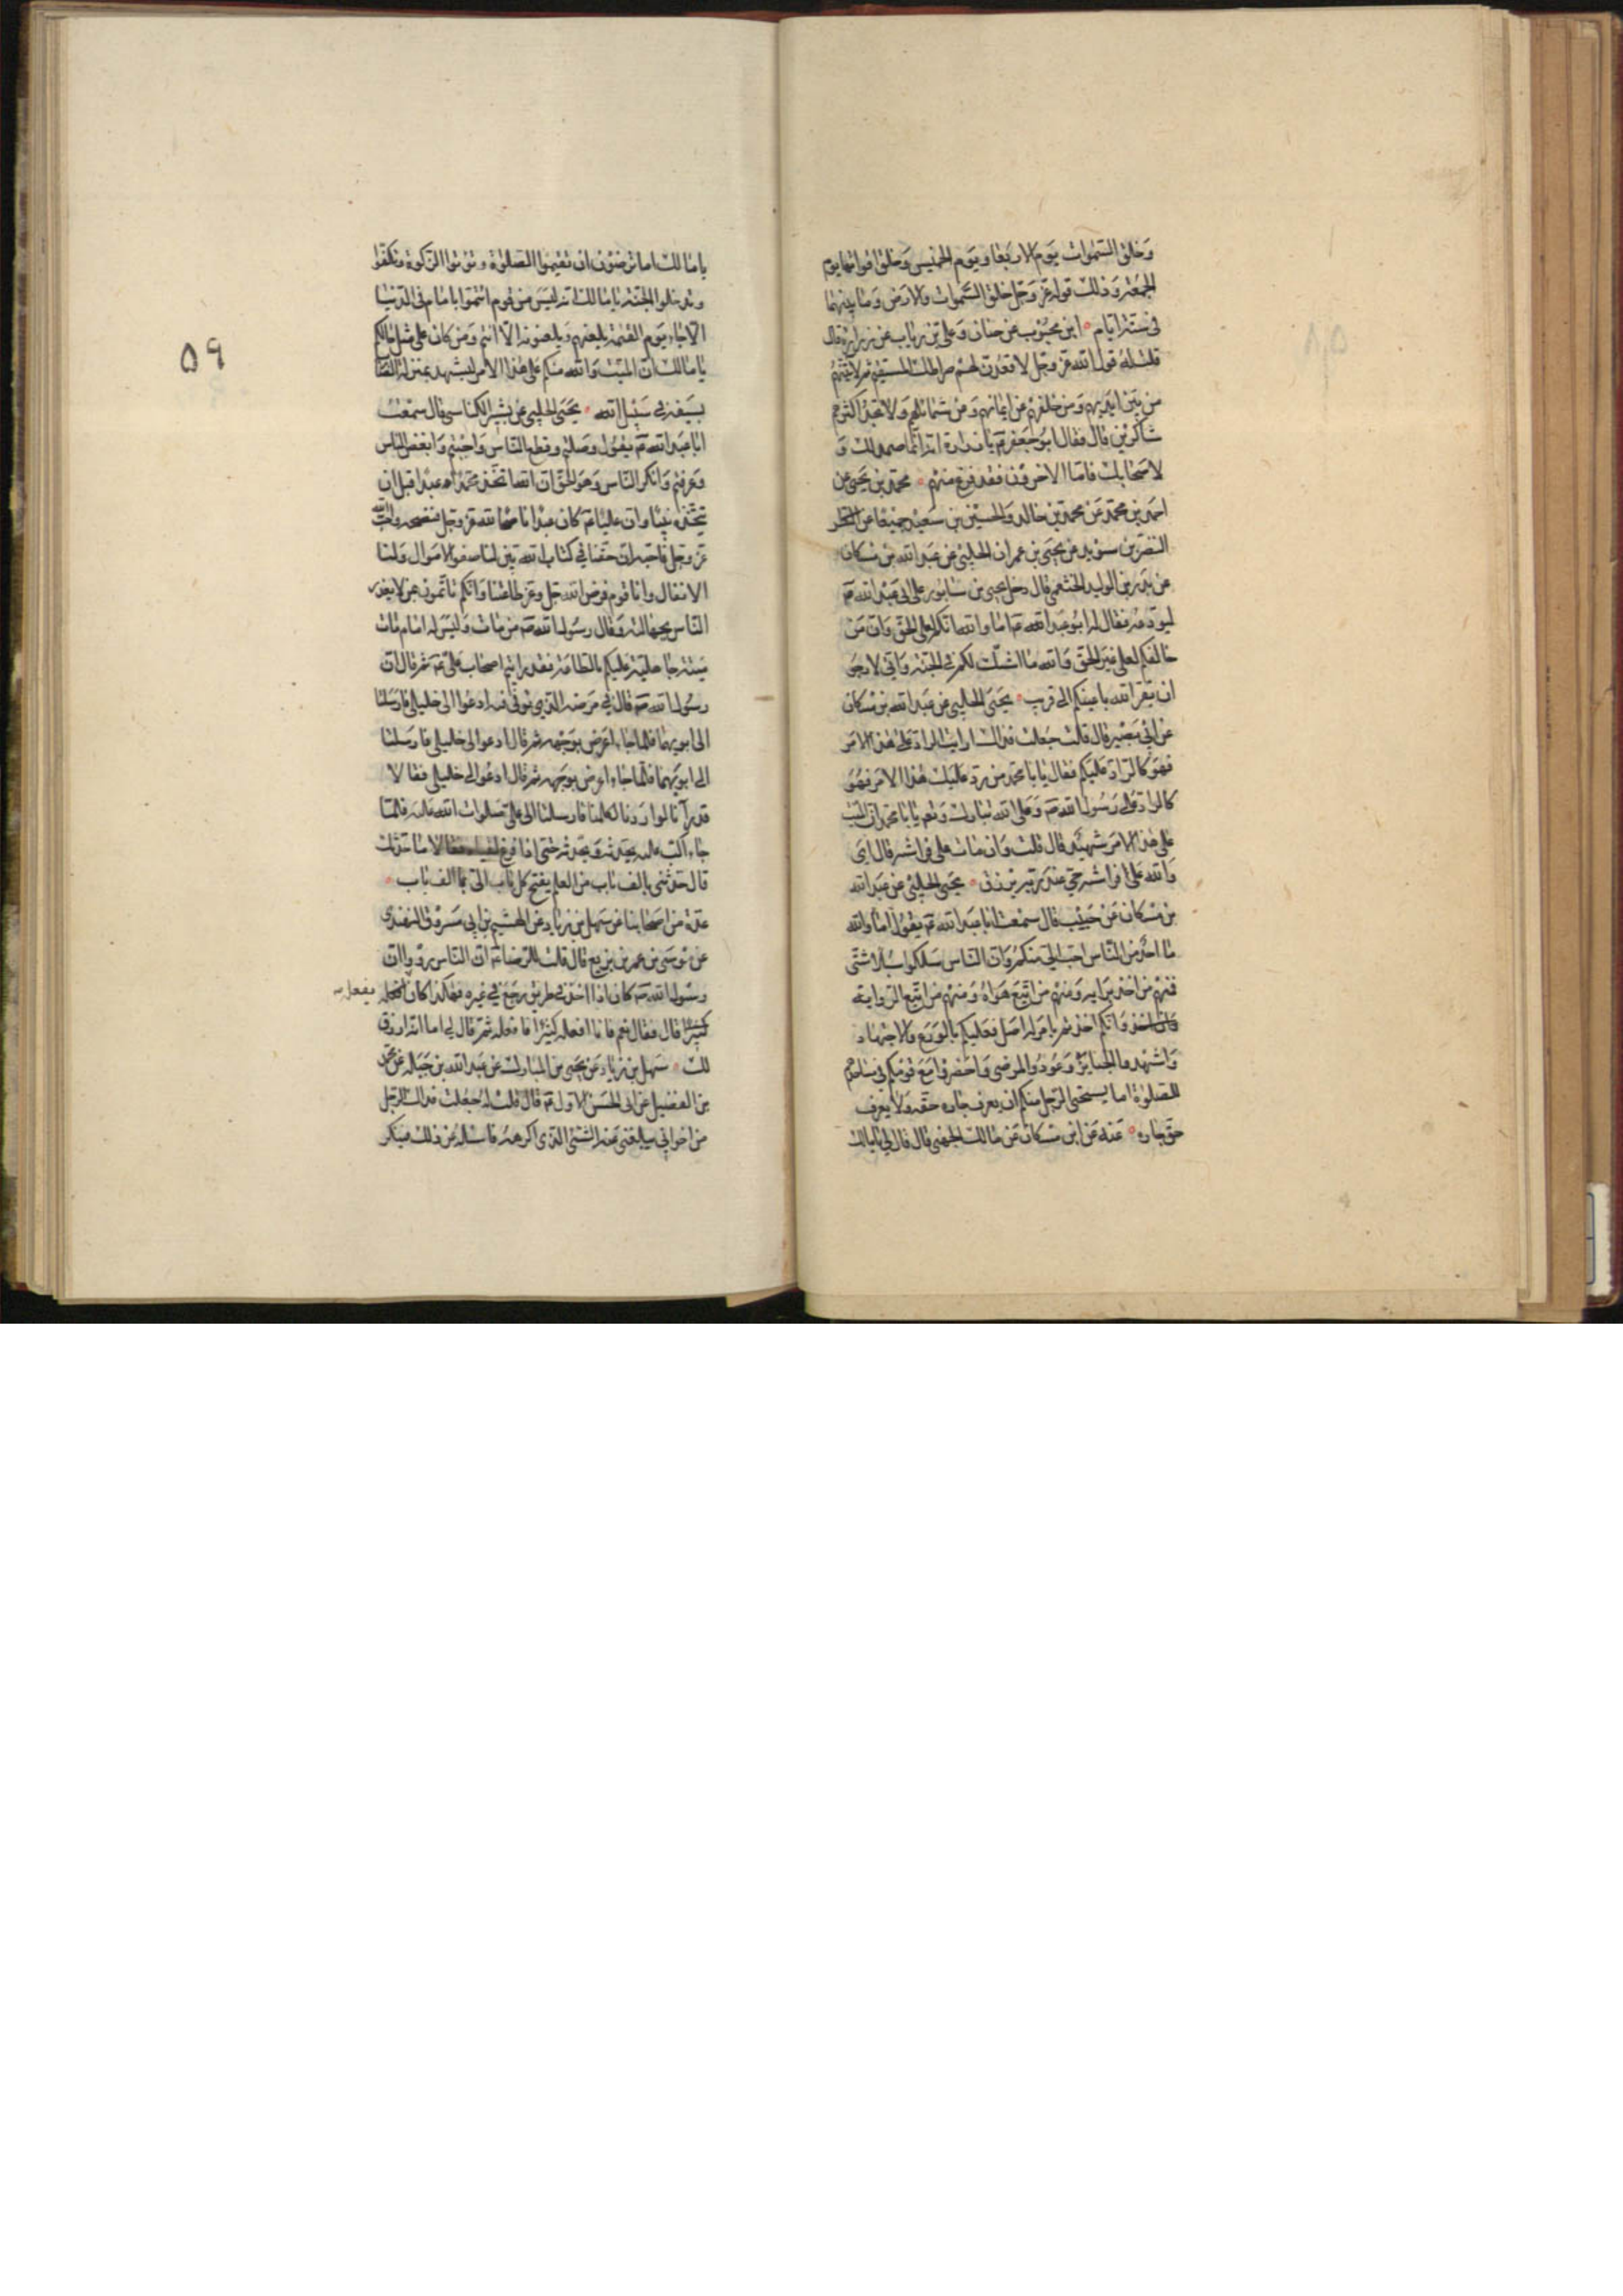 وخلق السموات يوم الاربعا ويوم الخميس وخلق اقواتها يوم
الجمعة وذلك قوله عز وجل خلق السموات والارض وما بينهما
في ستة ايام ابن محبوب عن حنان وعلي بن رئاب عن زرارة قال
قلت له قول الله عز وجل لاقعدن لهم صراطك المستقيم ثم لاتينهم
من بين ايديهم ومن خلفهم عن ايمانهم وعن شمائلهم ولا تجد اكثرهم
شاكرين قال فقال ابو جعفر ع يا زرارة انه انما صمد لك و
لاصحابك فاما الاخرون فقد فرغ منهم محمد بن يحيى عن
احمد بن محمد عن محمد بن خالد والحسين بن سعيد جميعا عن النضر
النضر بن سويد عن يحيى بن عمران الحلبي عن عبد الله بن مسكان
عن بدر بن الوليد الخثعمي قال دخل يحيى بن سابور على ابي عبد الله ع
ليودعه فقال له ابو عبد الله ع اما والله انكم لعلى الحق وان من
خالفكم لعلى غير الحق والله ما اشك لكم في الجنة واني لارجو
ان يقر الله باعينكم الى قريب يحيى الحلبي عن عبد الله بن مسكان
عن ابي بصير قال قلت جعلت فداك ارايت الراد على هذا الامر
فهو كالراد عليكم فقال يا با محمد من رد عليك هذا الامر فهو
كالراد على رسول الله ص وعلى الله تبارك وتع يا با محمد ان الميت
على هذا الامر شهيد قال قلت وان مات على فراشه قال اي
والله على فراشه حي عند ربه يرزق يحيى الحلبي عن عبد الله
بن مسكان عن حبيب قال سمعت ابا عبد الله ع يقول اما والله
ما احد من الناس احب الي منكم وان الناس سلكوا سبلا شتى
فمنهم من اخذ برايه ومنهم من اتبع هواه ومنهم من اتبع الرواية
وانكم اخذتم بامر له اصل فعليكم بالورع والاجتهاد
واشهدوا الجنايز وعودوا المرضى واحضروا مع قومكم في مساجدهم
للصلوة اما يستحيي الرجل منكم ان يعرف جاره حقه ولا يعرف
حق جاره عنه عن ابن مسكان عن مالك الجهني قال قال لي يا مالك
يا مالك اما ترضون ان تقيموا الصلوة وتؤتوا الزكوة وتكفوا
وتدخلوا الجنة يا مالك انه ليس من قوم ائتموا بامام في الدنيا
الا جاء يوم القيمة يلعنهم ويلعنونه الا انتم ومن كان على مثل حالكم
يا مالك ان الميت والله منكم على هذا الامر لشهيد بمنزلة الضارب
بسيفه في سبيل الله يحيى الحلبي عن بشير الكناسي قال سمعت
ابا عبد الله ع يقول وصلتم وقطع الناس واحببتم وابغض الناس
وعرفتم وانكر الناس وهو الحق ان الله اتخذ محمدا ص عبدا قبل ان
يتخذه نبيا وان عليا ع كان عبدا ناصحا لله عز وجل فنصحه واحب الله
عز وجل فاحبه ان حقنا في كتاب الله بين لنا صفو الاموال ولنا
الانفال وانا قوم فرض الله جل وعز طاعتنا وانكم تاتمون بمن لا يعذر
الناس بجهالته وقال رسول الله ص من مات وليس له امام مات
ميتة جاهلية عليكم بالطاعة فقد رايتم اصحاب علي ع ثم قال ان
رسول الله ص قال في مرضه الذي توفي فيه ادعوا لي خليلي فارسلتا
الى ابويهما فلما جاء اعرض بوجهه ثم قال ادعوا لي خليلي فارسلتا
الى ابويهما فلما جاء اعرض بوجهه ثم قال ادعوا لي خليلي فقالا
قد رآنا لو ارادنا لكلمنا فارسلتا الى علي صلوات الله عليه فلما
جاء اكب عليه يحدثه ويحدثه حتى اذا فرغ لقياه فقالا ما حدثك
قال حدثني بالف باب من العلم يفتح كل باب الى الف باب
عدة من اصحابنا عن سهل بن زياد عن الهيثم بن ابي مسروق النهدي
عن موسى بن عمر بن بزيع قال قلت للرضا ع ان الناس رووا ان
رسول الله ص كان اذا اخذ في طريق رجع في غيره فهكذا كان يفعل
كثيرا قال فقال نعم فانا افعله كثيرا فافعله ثم قال لي اما انه ارزق
لك سهل بن زياد عن يحيى بن المبارك عن عبد الله بن جبلة عن محمد
بن الفضيل عن ابي الحسن الاول ع قال قلت له جعلت فداك الرجل
من اخواني يبلغني عنه الشئ الذي اكرهه فاسئله عن ذلك فينكر
۵۹